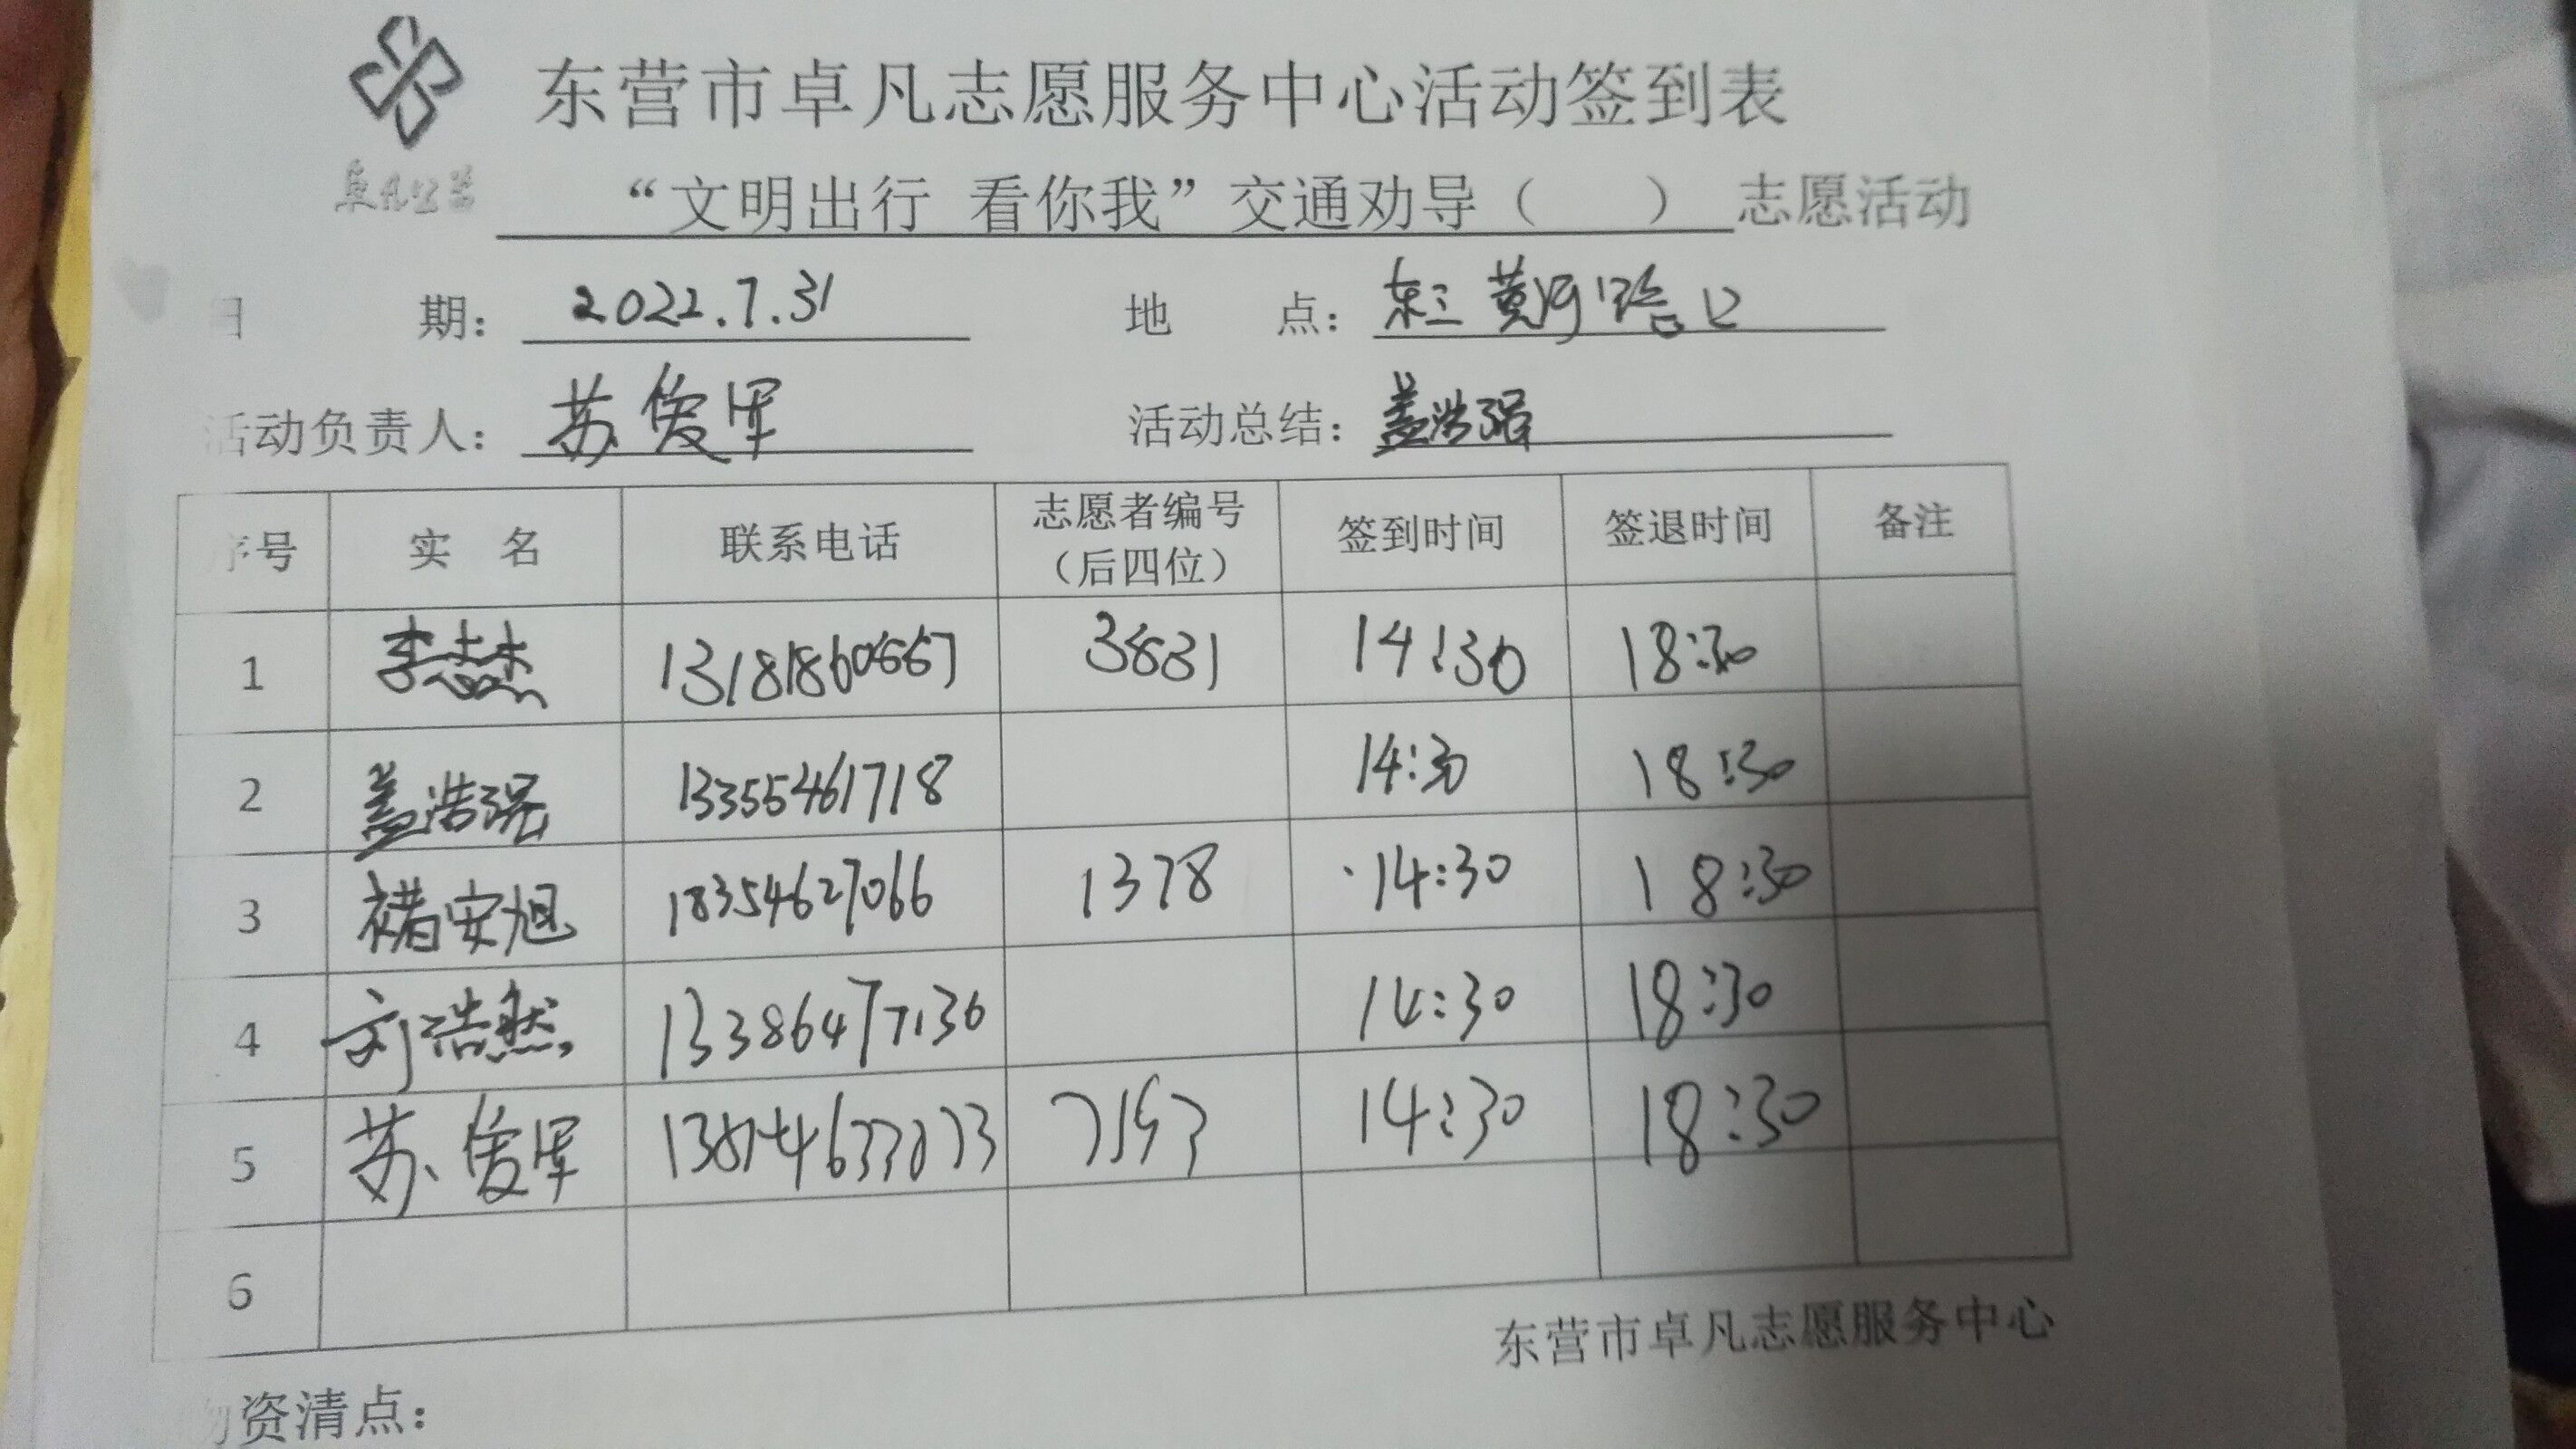 东营市卓凡志愿服务中心活动签到表
卓凡公益
“文明出行 看你我”交通劝导（ ）志愿活动
日期：2022.7.31 地点：东三黄河路口
活动负责人：苏俊军 活动总结：盖浩强
序号 实 名 联系电话 志愿者编号（后四位） 签到时间 签退时间 备注
1 李志杰 3831 14:30 18:30
2 盖浩强 13355461718 14:30 18:30
3 褚安旭 18354627066 1378 14:30 18:30
4 刘浩然 13386477136 14:30 18:30
5 苏俊军 7193 14:30 18:30
6
东营市卓凡志愿服务中心
物资清点：